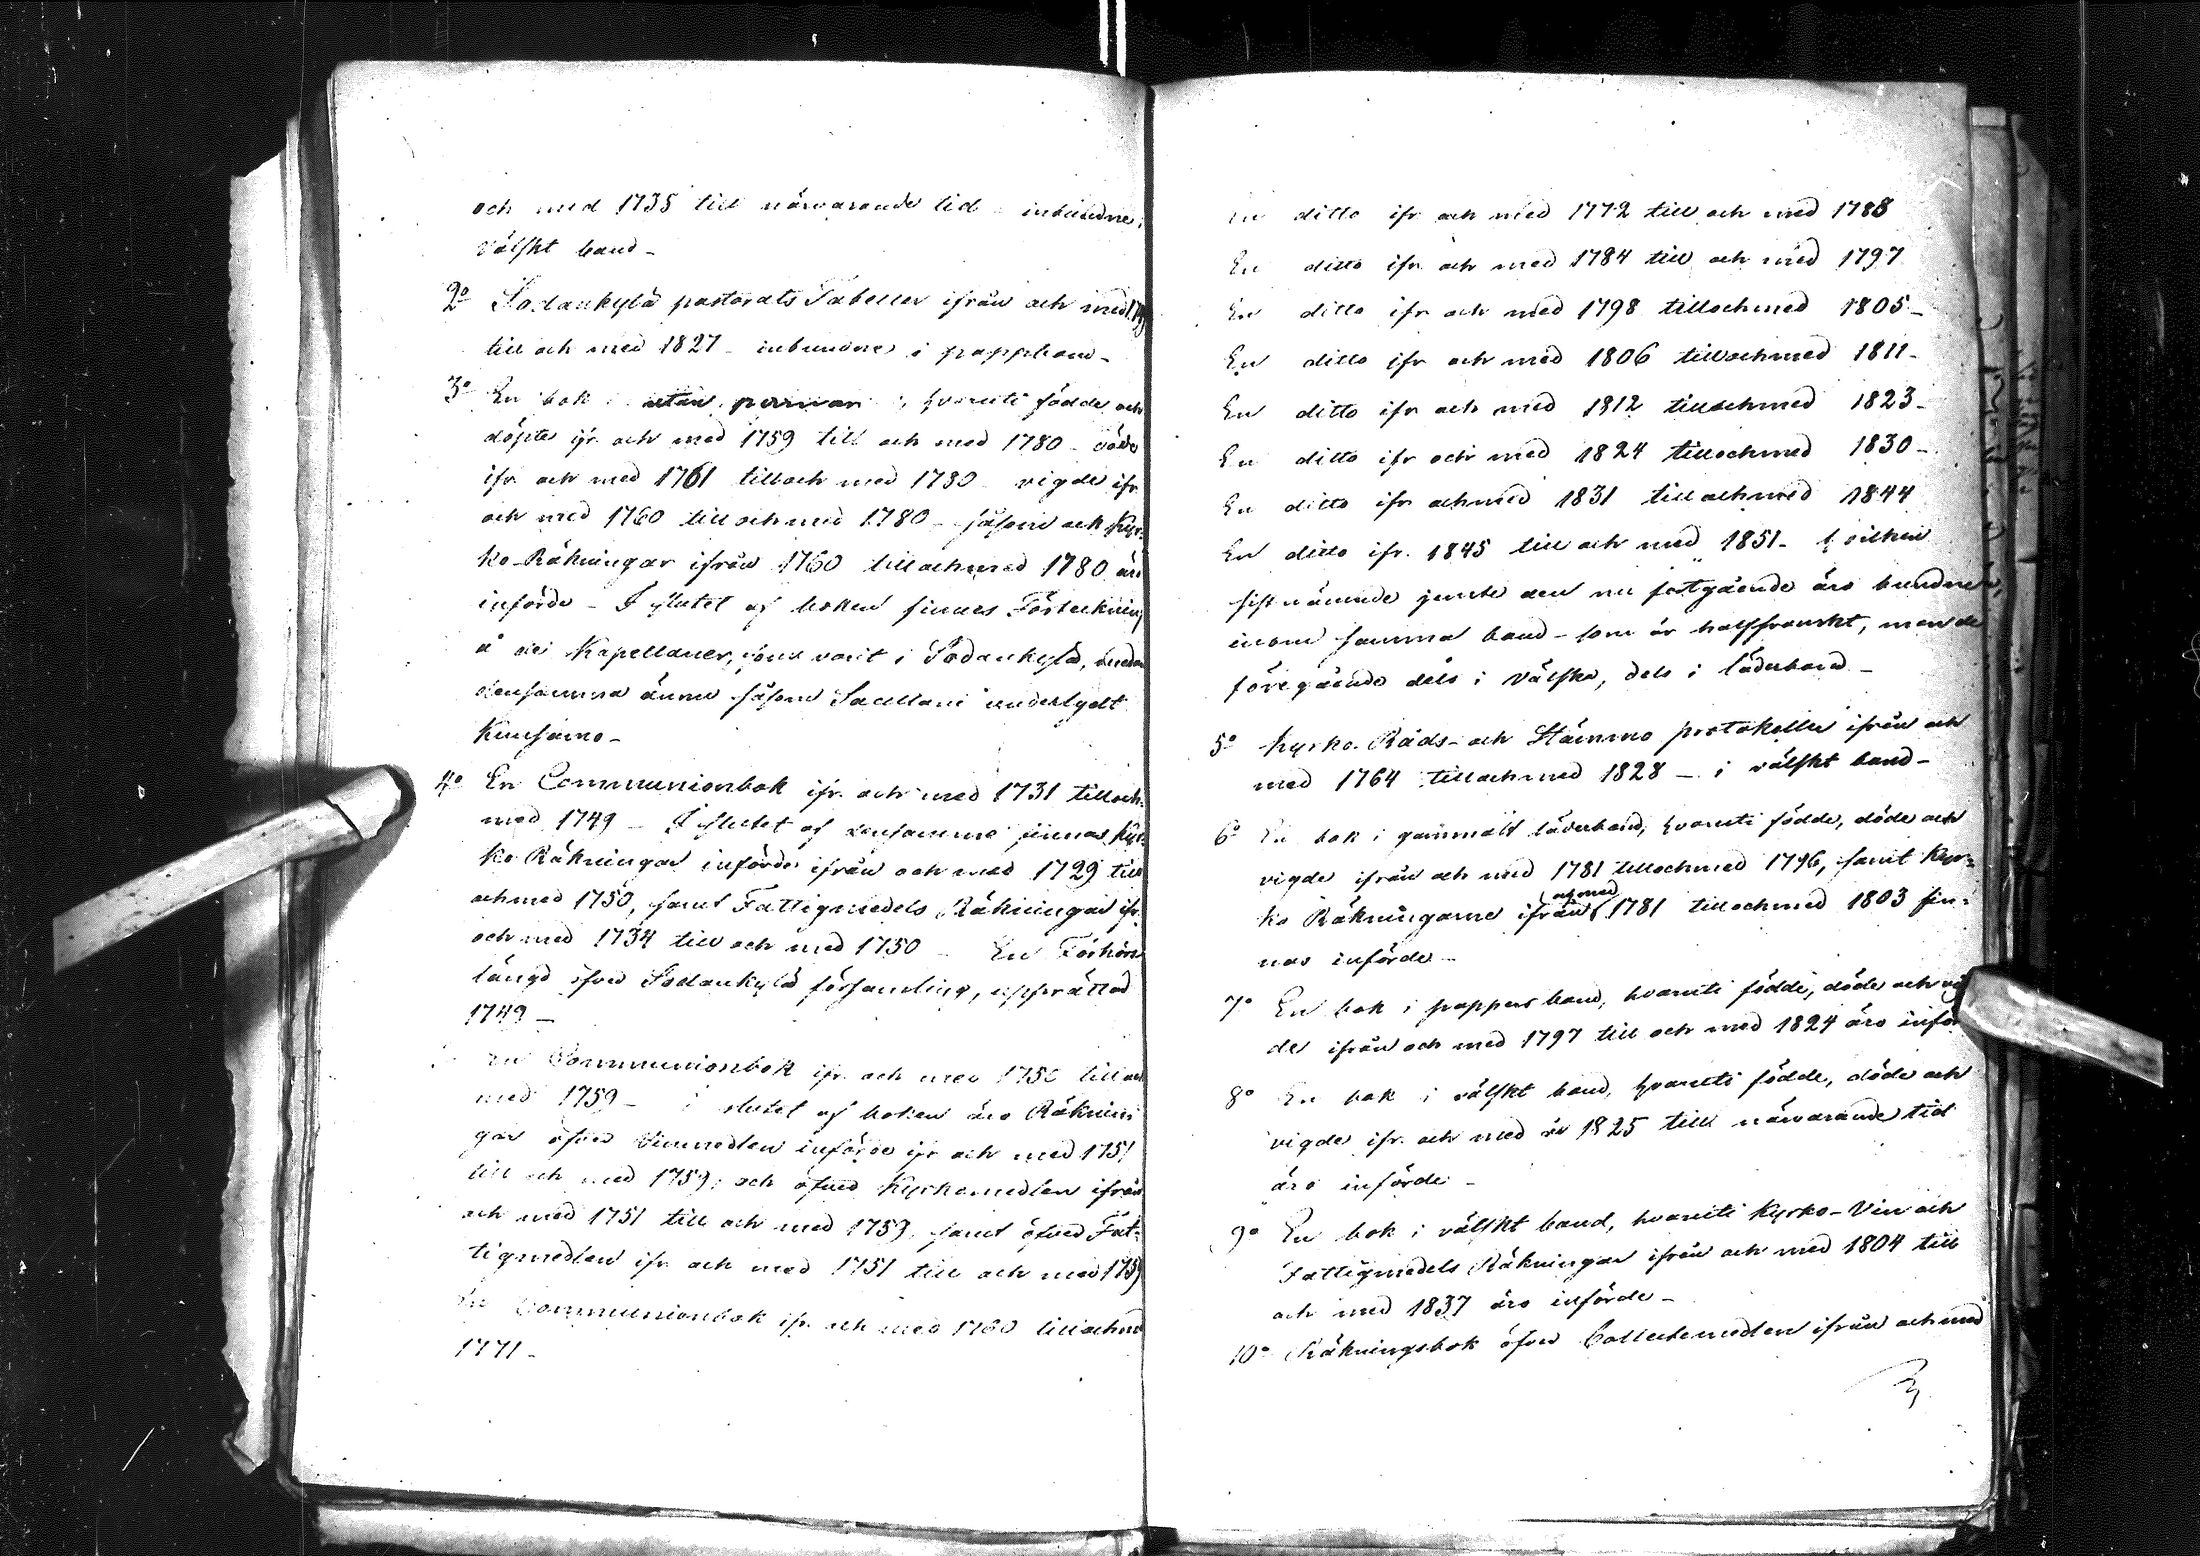 och med 1735 till närvarande tid inbundne i
välskt band -
2o Sodankylä pastorats Tabeller ifrån och med
till och med 1827 - inbundne i pappband -
3o En bok utan permar, hvaruti födde och
döpte ifr. och med 1759 till och med 1780 - döde
ifr. och med 1761 till och med 1780 - vigde ifr.
och med 1760 till och med 1780 - såsom ock Kyr-
ko-Räkningar ifrån 1760 till och med 1780 äro
införde - I slutet af boken finnes Förteckning
å de Kapellaner, som varit i Sodankylä, medan
densamma ännu såsom Sacellani underlydt
Kuusamo -
4o En Communionbok ifr. och med 1731 till och
med 1749 - I slutet af densamma finnas Kyr-
ko Räkningar införde ifrån och med 1729 till
och med 1750, samt Fattigmedels Räkningar ifr.
och med 1734 till och med 1750 - En Förhörs
längd öfver Sodankylä församling, upprättad
1749 -
En Communionbok ifr. och med 1750 till och
med 1759 - i slutet af boken äro Räknin
gar öfver Vinmedlen införde ifr. och med 1751
till och med 1759; och öfver Kyrkomedlen ifrån
och med 1751 till och med 1759, samt öfver Fat-
tigmedlen ifr. och med 1751 till och med 1759
En Communionbok ifr. och med 1760 till och med
1771 -
En ditto ifr. och med 1772 till och med 1788
En ditto ifr. och med 1784 till och med 1797
En ditto ifr. och med 1798 till och med 1805 -
En ditto ifr. och med 1806 till och med 1811 -
En ditto ifr. och med 1812 till och med 1823 -
En ditto ifr. och med 1824 till och med 1830 -
En ditto ifr. och med 1831 till och med 1844
En ditto ifr. 1845 till och med 1851 - hvilken
sistnämnde jemte den nu fortgående äro bundne
inom samma band - som är halffranskt, men de
föregående dels i välska, dels i läderband -
5o Kyrko-Råds- och Stämmo protokoller ifrån och
med 1764 till och med 1828 - i välskt band -
6o En bok i gammalt läderband, hvaruti födde, döde och
vigde ifrån och med 1781 till och med 1796, samt Kyr-
ko Räkningarne ifrån och med 1781 till och med 1803 fin-
nas införde -
7o En bok i pappers band, hvaruti födde, döde och vig
de ifrån och med 1797 till och med 1824 äro inför
8o En bok i välskt band, hvaruti födde, döde och
vigde ifr. och med år 1825 till närvarande tid
äro införde -
9o En bok i välskt band, hvaruti Kyrko-Vin och
Fattigmedels Räkningar ifrån och med 1804 till
och med 1837 äro införde -
10o Räkningsbok öfver Collectemedlen ifrån och med